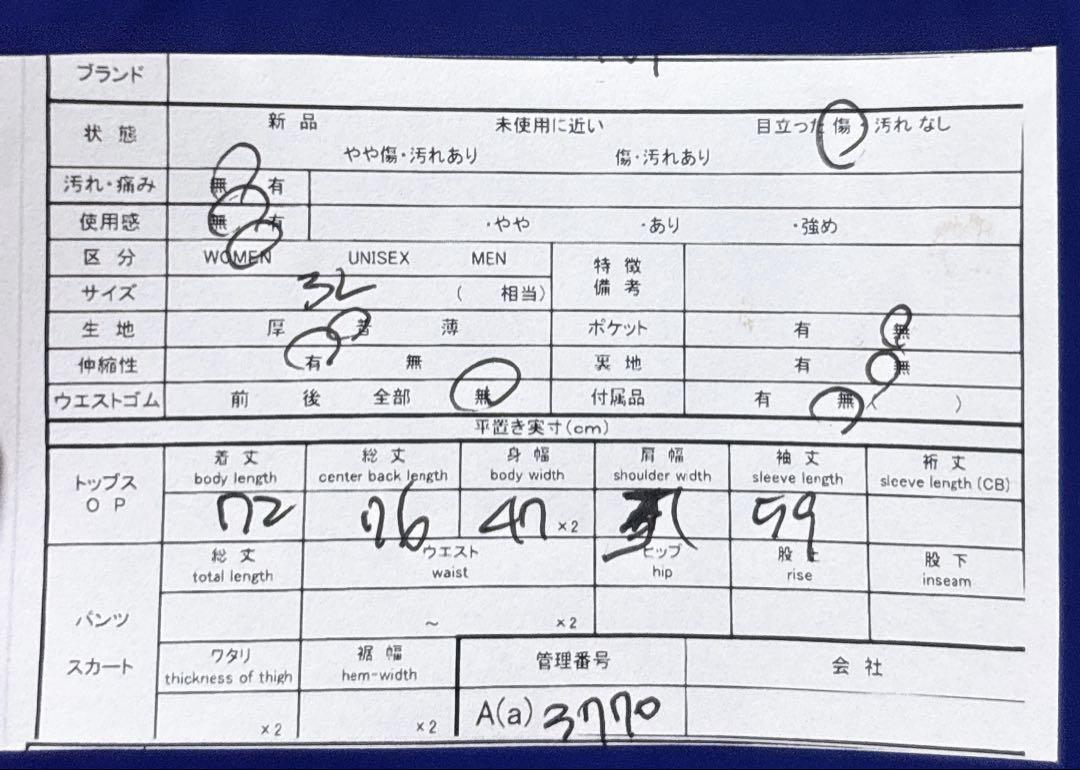 ブランド
状態 新品 未使用に近い 目立った傷・汚れなし
やや傷・汚れあり 傷・汚れあり
汚れ・痛み 無 有
使用感 無 有 ・やや ・あり ・強め
区分 WOMEN UNISEX MEN 特徴
備考
サイズ 32 ( 相当)
生地 厚 薄 ポケット 有 無
伸縮性 有 無 裏地 有 無
ウエストゴム 前 後 全部 無 付属品 有 無 ( )
平置き実寸(cm)
トップス
OP
着丈 総丈 身幅 肩幅 袖丈 裄丈
body length center back length body width shoulder wdth sleeve length sleeve length (CB)
72 76 47 ×2 59
総丈 ウエスト ヒップ 股上 股下
total length waist hip rise inseam
パンツ ～ ×2
スカート ワタリ 裾幅 管理番号 会社
thickness of thigh hem-width
×2 ×2 A(a) 3770